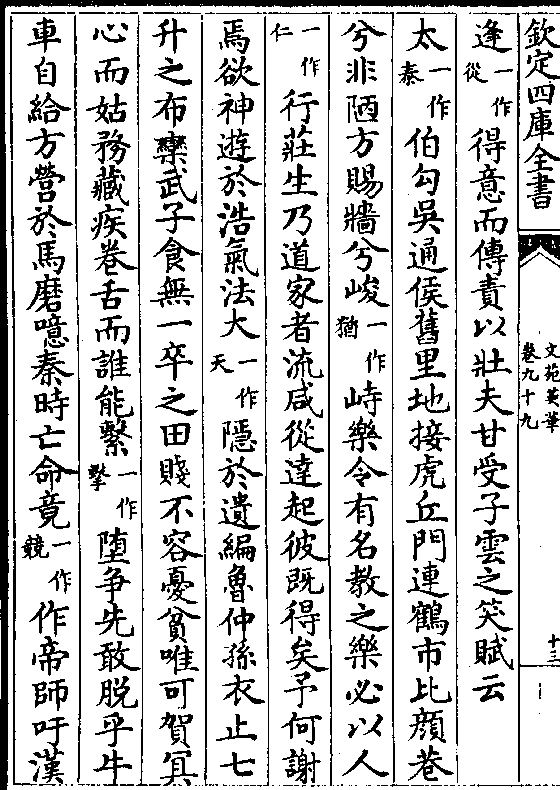 欽定四庫全書
文苑英華
卷九十九
十三
逢一作從得意而傳責以壯夫甘受子雲之笑賦云
太一作泰伯勾吳通侯舊里地接虎丘門連鶴市比顔巷
兮非陋方賜牆兮峻一作猶峙樂令有名教之樂必以人
一作仁行莊生乃道家者流咸從達起彼既得矣予何謝
焉欲神遊於浩氣法大一作天隱於遺編魯仲孫衣止七
升之布欒武子食無一卒之田賤不容憂貧唯可賀冥
心而姑務藏疾卷舌而誰能繫一作擊墮爭先敢脫乎牛
車自給方營於馬磨噫秦時亡命竟一作競作帝師吁漢